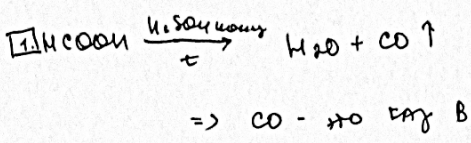 1. HCOOH H₂SO₄ конц t → H₂O + CO ↑
=> CO - это газ B